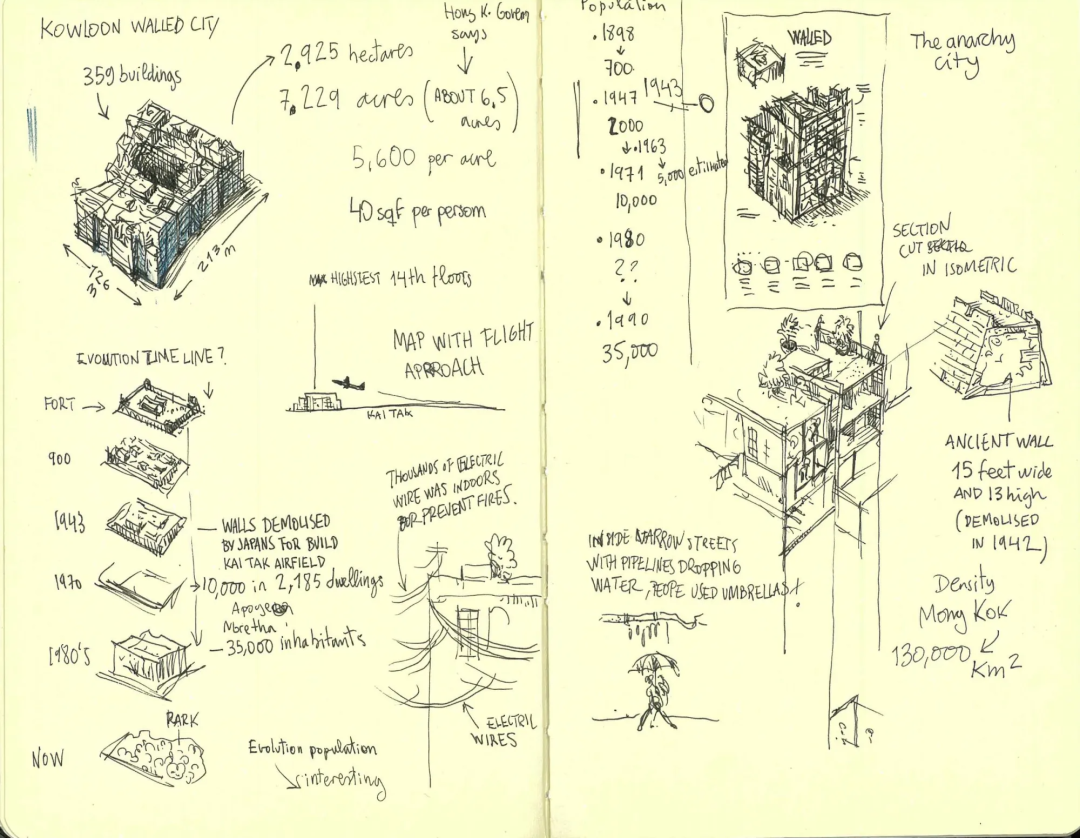 KOWLOON WALLED CITY
359 buildings
126
m
213 m
2,925 hectares
7,229 acres
Hong K. Govern
says
(ABOUT 6,5
acres)
5,600 per acre
40 sqf per person
MAX HIGHSTEST 14th floors
MAP WITH FLIGHT
APRROACH
KAI TAK
EVOLUTION TIME LINE?
FORT
900
1943
WALLS DEMOLISED
BY JAPANS FOR BUILD
KAI TAK AIRFIELD
1970
10,000 in 2,185 dwellings
1980'S
35,000 inhabitants
NOW
PARK
Evolution population
interesting
THOUSANDS OF ELECTRIC
WIRE WAS INDOORS
PREVENT FIRES.
ELECTRIC
WIRES
Population
1898
700
1947 1943
2000
1963
1971 5,000 estimated
10,000
1980
??
1990
35,000
WALLED
The anarchy
city
SECTION
CUT
IN ISOMETRIC
ANCIENT WALL
15 feet wide
AND 13 high
(DEMOLISED
IN 1942)
INSIDE NARROW STREETS
WITH PIPELINES DROPPING
WATER, PEOPE USED UMBRELLAS!
Density
Mong Kok
130,000
Km2